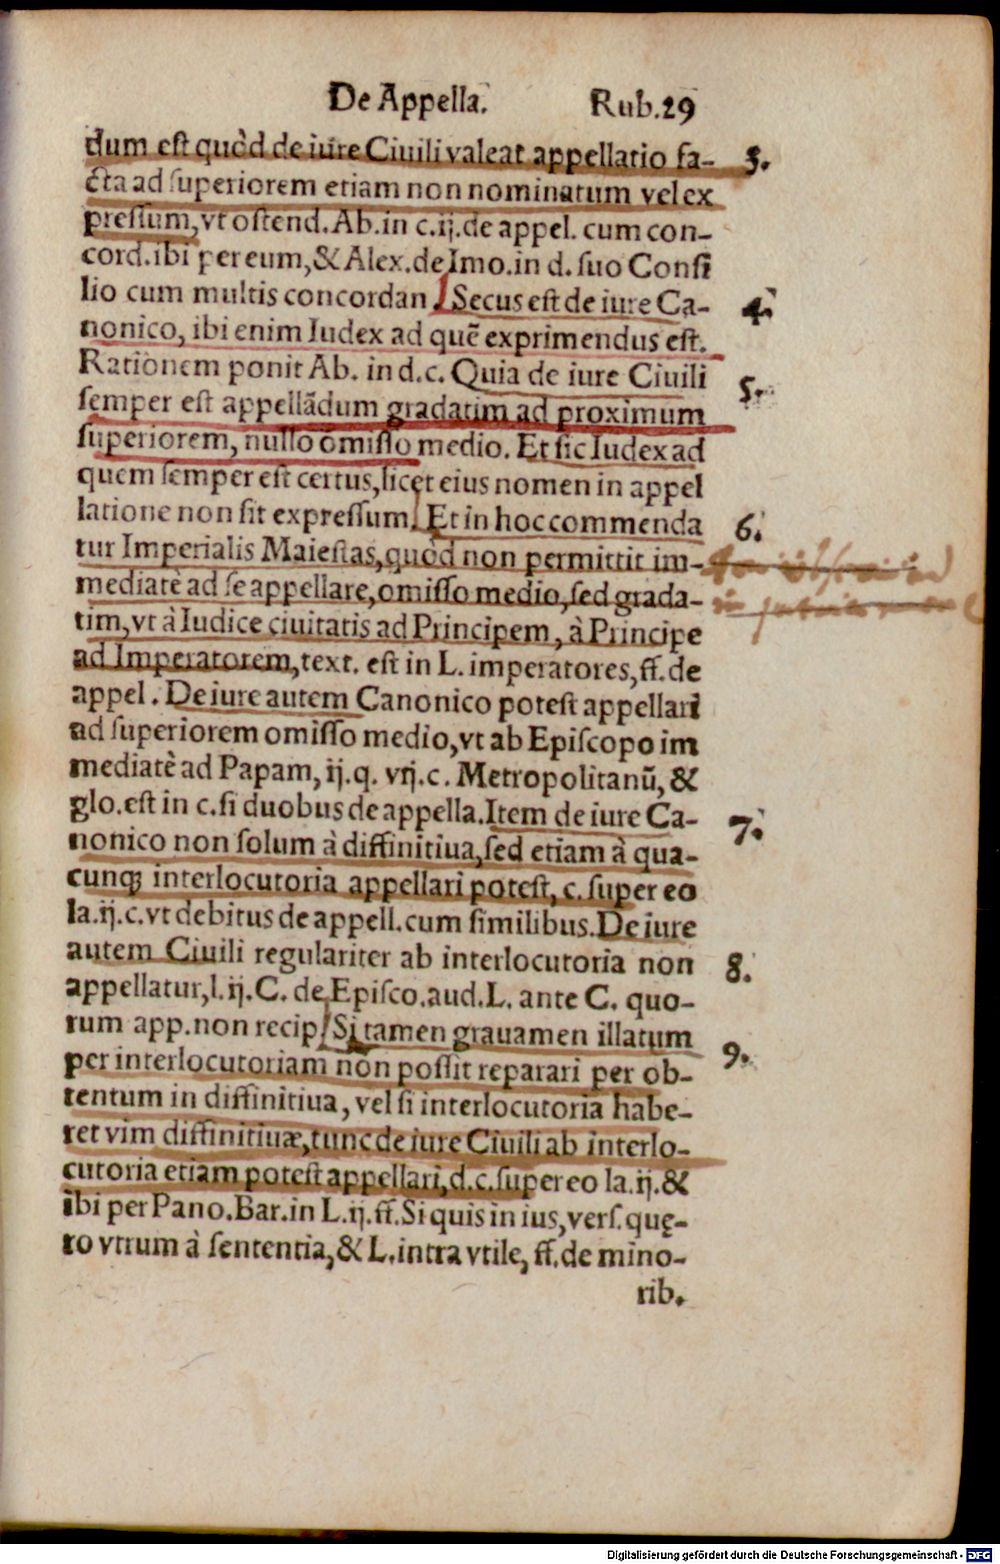 De Appella. Rub.29
dum est quòd de iure Ciuili valeat appellatio fa- 3.
cta ad superiorem etiam non nominatum vel ex
pressum, vt ostend. Ab. in c.ij. de appel. cum con-
cord. ibi per eum, & Alex. de Imo. in d. suo Consi
lio cum multis concordan. Secus est de iure Ca- 4.
nonico, ibi enim Iudex ad quẽ exprimendus est.
Rationem ponit Ab. in d.c. Quia de iure Ciuili 5.
semper est appellãdum gradatim ad proximum
superiorem, nullo omisso medio. Et sic Iudex ad
quem semper est certus, licet eius nomen in appel
latione non sit expressum. Et in hoc commenda 6.
tur Imperialis Maiestas, quòd non permittit im-
mediatè ad se appellare, omisso medio, sed grada-
tim, vt à Iudice ciuitatis ad Principem, à Principe
ad Imperatorem, text. est in L. imperatores, ff. de
appel. De iure autem Canonico potest appellari
ad superiorem omisso medio, vt ab Episcopo im
mediatè ad Papam, ij.q. vij.c. Metropolitanũ, &
glo. est in c. si duobus de appella. Item de iure Ca- 7.
nonico non solum à diffinitiua, sed etiam à qua-
cunq; interlocutoria appellari potest, c. super eo
la.ij.c. vt debitus de appell. cum similibus. De iure
autem Ciuili regulariter ab interlocutoria non 8.
appellatur, l.ij. C. de Episco. aud. L. ante C. quo-
rum app. non recip. Si tamen grauamen illatum 9.
per interlocutoriam non possit reparari per ob-
tentum in diffinitiua, vel si interlocutoria habe-
ret vim diffinitiuæ, tunc de iure Ciuili ab interlo-
cutoria etiam potest appellari, d.c. super eo la.ij. &
ibi per Pano. Bar. in L.ij. ff. Si quis in ius, vers. quę-
ro vtrum à sententia, & L. intra vtile, ff. de mino-
rib.
Digitalisierung gefördert durch die Deutsche Forschungsgemeinschaft - DFG